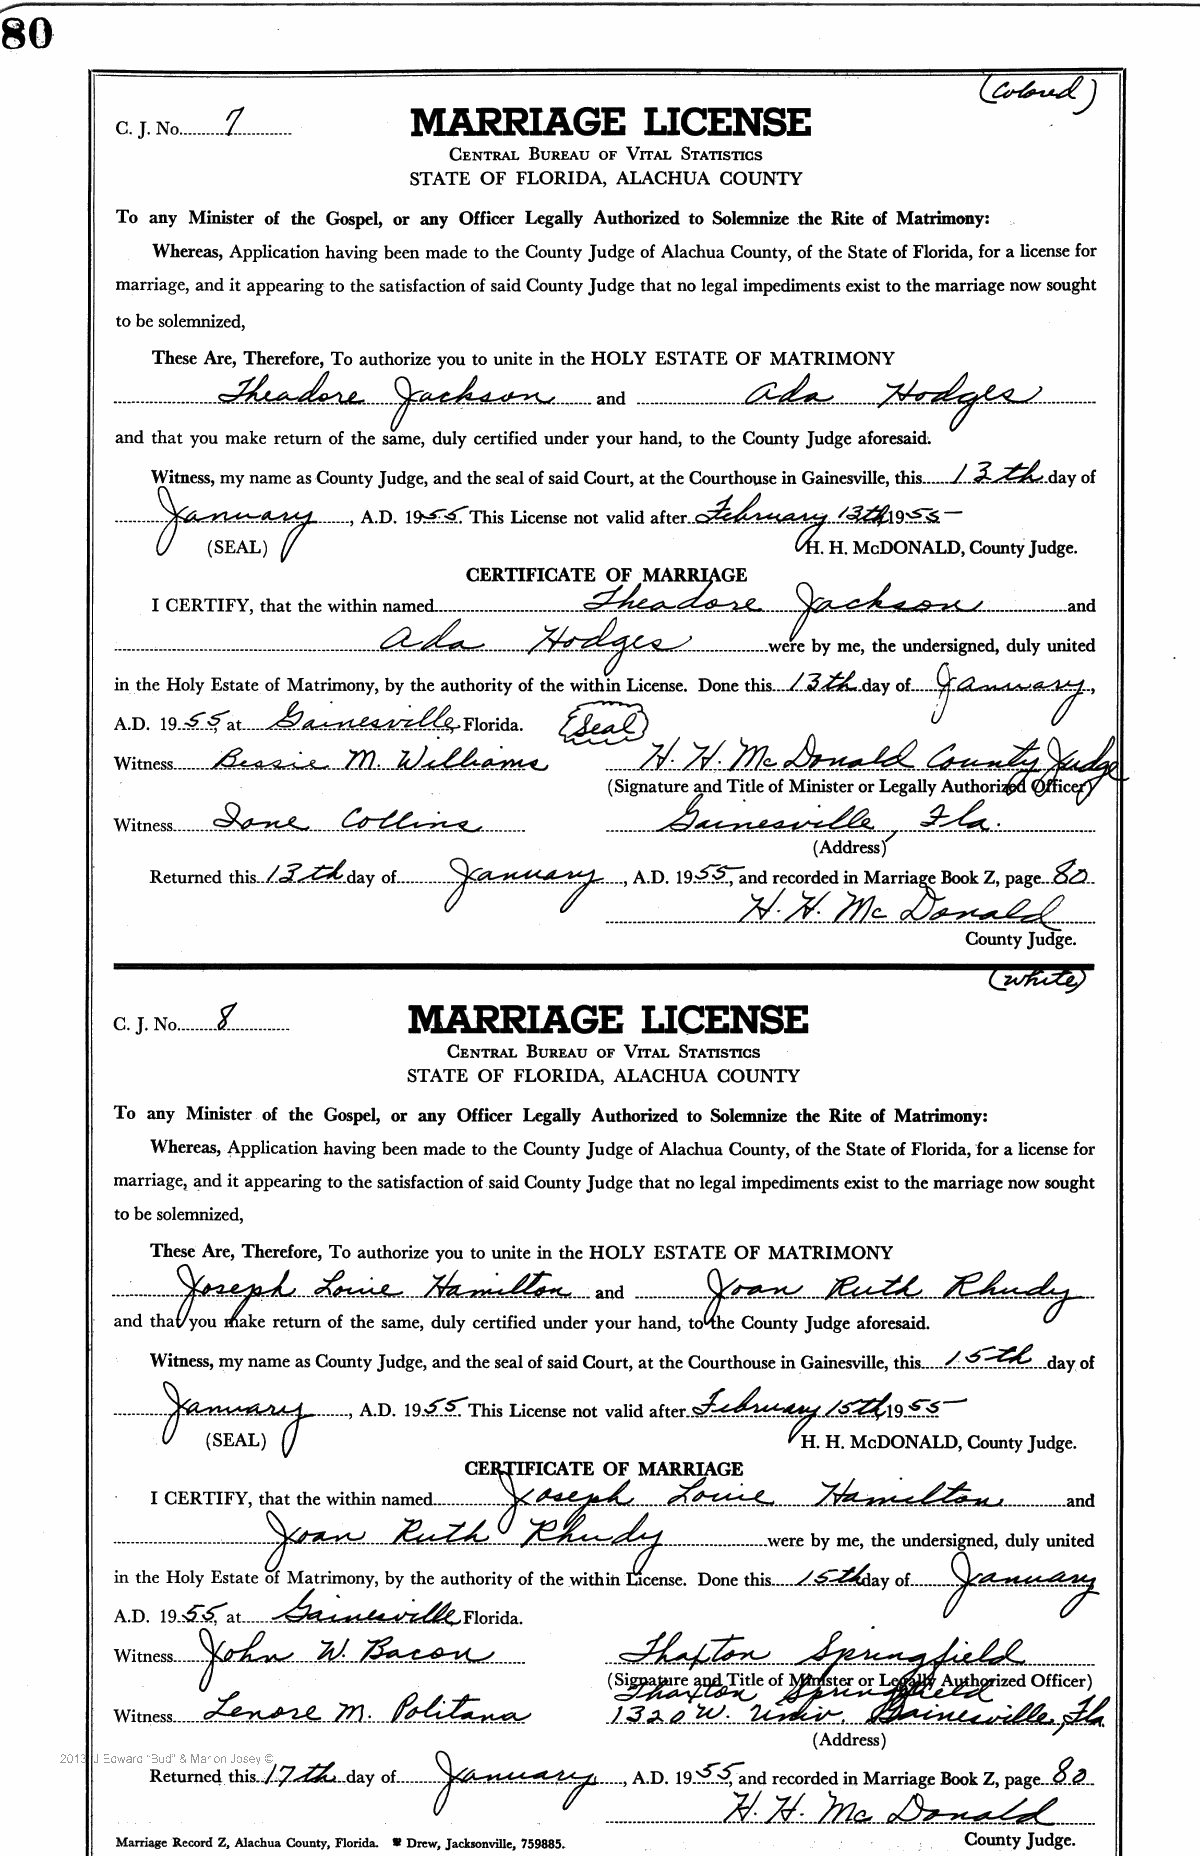 80
(Colored)
C. J. No. 7
MARRIAGE LICENSE
CENTRAL BUREAU OF VITAL STATISTICS
STATE OF FLORIDA, ALACHUA COUNTY
To any Minister of the Gospel, or any Officer Legally Authorized to Solemnize the Rite of Matrimony:
Whereas, Application having been made to the County Judge of Alachua County, of the State of Florida, for a license for
marriage, and it appearing to the satisfaction of said County Judge that no legal impediments exist to the marriage now sought
to be solemnized,
These Are, Therefore, To authorize you to unite in the HOLY ESTATE OF MATRIMONY
Theadore Jackson and Ada Hodges
and that you make return of the same, duly certified under your hand, to the County Judge aforesaid.
Witness, my name as County Judge, and the seal of said Court, at the Courthouse in Gainesville, this 13th day of
January, A.D. 1955. This License not valid after February 13th, 1955
(SEAL) H. H. McDONALD, County Judge.
CERTIFICATE OF MARRIAGE
I CERTIFY, that the within named Theadore Jackson and
Ada Hodges were by me, the undersigned, duly united
in the Holy Estate of Matrimony, by the authority of the within License. Done this 13th day of January,
A.D. 1955, at Gainesville, Florida. (Seal)
Witness Bessie M. Williams H. H. McDonald County Judge
(Signature and Title of Minister or Legally Authorized Officer)
Witness Ione Collins Gainesville, Fla.
(Address)
Returned this 13th day of January, A.D. 1955, and recorded in Marriage Book Z, page 80
H. H. McDonald
County Judge.
(White)
C. J. No. 8
MARRIAGE LICENSE
CENTRAL BUREAU OF VITAL STATISTICS
STATE OF FLORIDA, ALACHUA COUNTY
To any Minister of the Gospel, or any Officer Legally Authorized to Solemnize the Rite of Matrimony:
Whereas, Application having been made to the County Judge of Alachua County, of the State of Florida, for a license for
marriage, and it appearing to the satisfaction of said County Judge that no legal impediments exist to the marriage now sought
to be solemnized,
These Are, Therefore, To authorize you to unite in the HOLY ESTATE OF MATRIMONY
Joseph Louie Hamilton and Joan Ruth Rhudy
and that you make return of the same, duly certified under your hand, to the County Judge aforesaid.
Witness, my name as County Judge, and the seal of said Court, at the Courthouse in Gainesville, this 15th day of
January, A.D. 1955. This License not valid after February 15th, 1955
(SEAL) H. H. McDONALD, County Judge.
CERTIFICATE OF MARRIAGE
I CERTIFY, that the within named Joseph Louie Hamilton and
Joan Ruth Rhudy were by me, the undersigned, duly united
in the Holy Estate of Matrimony, by the authority of the within License. Done this 15th day of January
A.D. 1955, at Gainesville, Florida.
Witness John W. Bacon Thaxton Springfield
(Signature and Title of Minister or Legally Authorized Officer)
Thaxton Springfield
Witness Lenore M. Politana 1320 W. Univ. Gainesville, Fla.
(Address)
2013 J Edward "Bud" & Marion Josey ©
Returned this 17th day of January, A.D. 1955, and recorded in Marriage Book Z, page 80
H. H. McDonald
County Judge.
Marriage Record Z, Alachua County, Florida. Drew, Jacksonville, 759885.